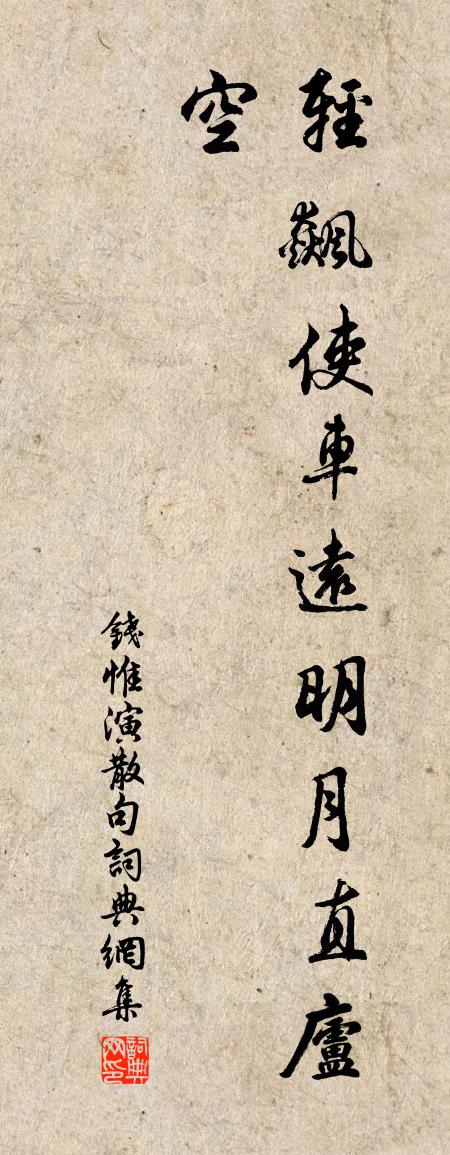 輕飆使車遠明月直廬
空
錢惟演散句詞典網集
詞典
网印